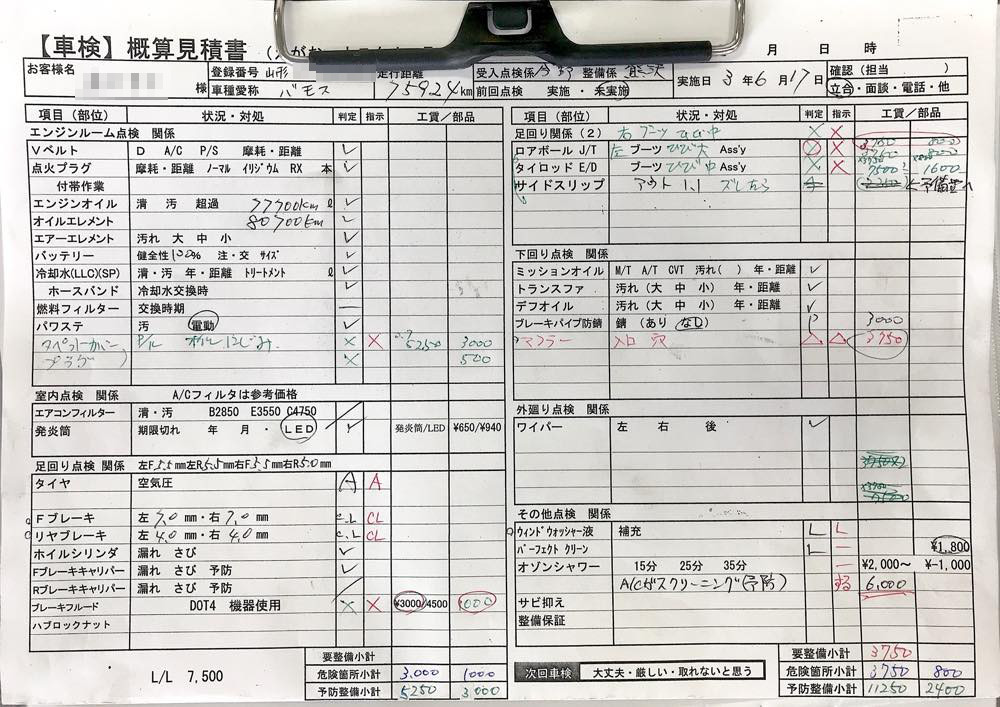 【車検】概算見積書
月 日 時
お客様名 様
登録番号 山形
車種愛称 バモス
走行距離 75924km
受入点検係 整備係
前回点検 実施・未実施
実施日 3年6月17日
確認(担当 )
立合・面談・電話・他
項目(部位) 状況・対処 判定 指示 工賃/部品
エンジンルーム点検 関係
Vベルト D A/C P/S 摩耗・距離
点火プラグ 摩耗・距離 ノーマル イリジウム RX 本
付帯作業
エンジンオイル 清 汚 超過 77700km ℓ
オイルエレメント 80700km
エアーエレメント 汚れ 大 中 小
バッテリー 健全性100% 注・交 サイズ
冷却水(LLC)(SP) 清・汚 年・距離 トリートメント ℓ
ホースバンド 冷却水交換時
燃料フィルター 交換時期
パワステ 汚 電動
タペットカバー P/L オイルにじみ × × 5250 3000
プラグ × 500
室内点検 関係 A/Cフィルタは参考価格
エアコンフィルター 清・汚 B2850 E3550 C4750
発炎筒 期限切れ 年 月・ LED 発炎筒/LED ¥650/¥940
足回り点検 関係 左F5.5mm左R5.5mm右F3.5mm右R5.0mm
タイヤ 空気圧 A A
Fブレーキ 左7.0mm・右7.0mm C.L CL
リヤブレーキ 左4.0mm・右4.0mm C.L CL
ホイルシリンダ 漏れ さび
Fブレーキキャリパー 漏れ さび 予防
Rブレーキキャリパー 漏れ さび 予防
ブレーキフルード DOT4 機器使用 × × ¥3000/4500 1000
ハブロックナット
L/L 7,500
要整備小計
危険箇所小計 3,000 1000
予防整備小計 5250 3,000
項目(部位) 状況・対処 判定 指示 工賃/部品
足回り関係(2) 右ブーツひび中 × × 3750 800
ロアボールJ/T 左ブーツひび大 Ass'y × ×
タイロッドE/D ブーツひび中 Ass'y × × 7500 1600
サイドスリップ アウト 1.1
下回り点検 関係
ミッションオイル M/T A/T CVT 汚れ( ) 年・距離
トランスファ 汚れ(大 中 小) 年・距離
デフオイル 汚れ(大 中 小) 年・距離
ブレーキパイプ防錆 錆(あり なし) P 3000
マフラー 入口 穴 △ △ 3750
外廻り点検 関係
ワイパー 左 右 後
その他点検 関係
ウィンドウォッシャー液 補充 L L
パーフェクト クリーン L ー ¥1,800
オゾンシャワー 15分 25分 35分 ー ¥2,000~ ¥-1,000
A/Cガスクリーニング(予防) する 6,000
サビ抑え
整備保証
次回車検 大丈夫・厳しい・取れないと思う
要整備小計 3750
危険箇所小計 3750 800
予防整備小計 11250 2400